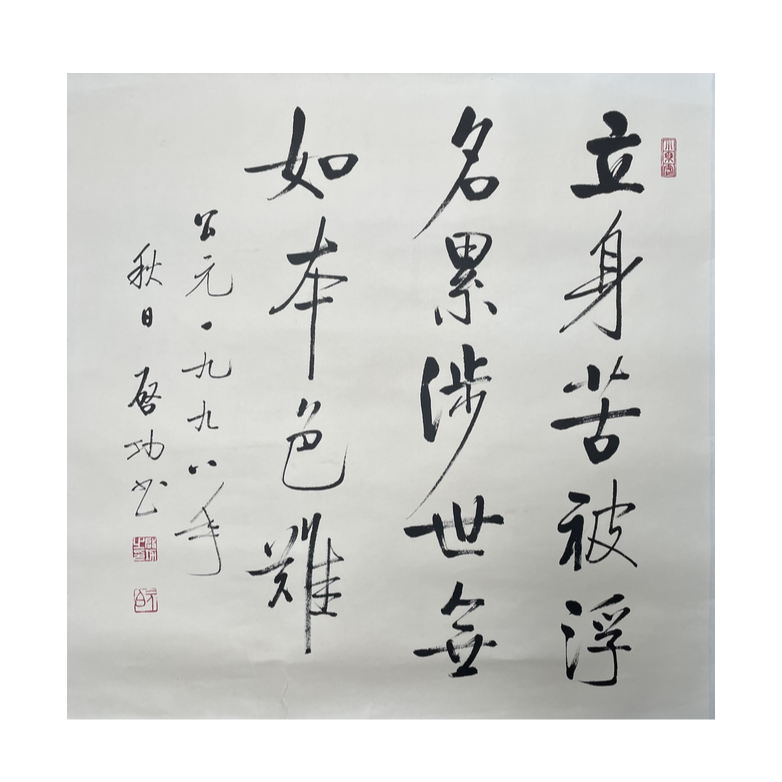 立身苦被浮
名累涉世無
如本色難
公元一九九八年
秋日 啓功书